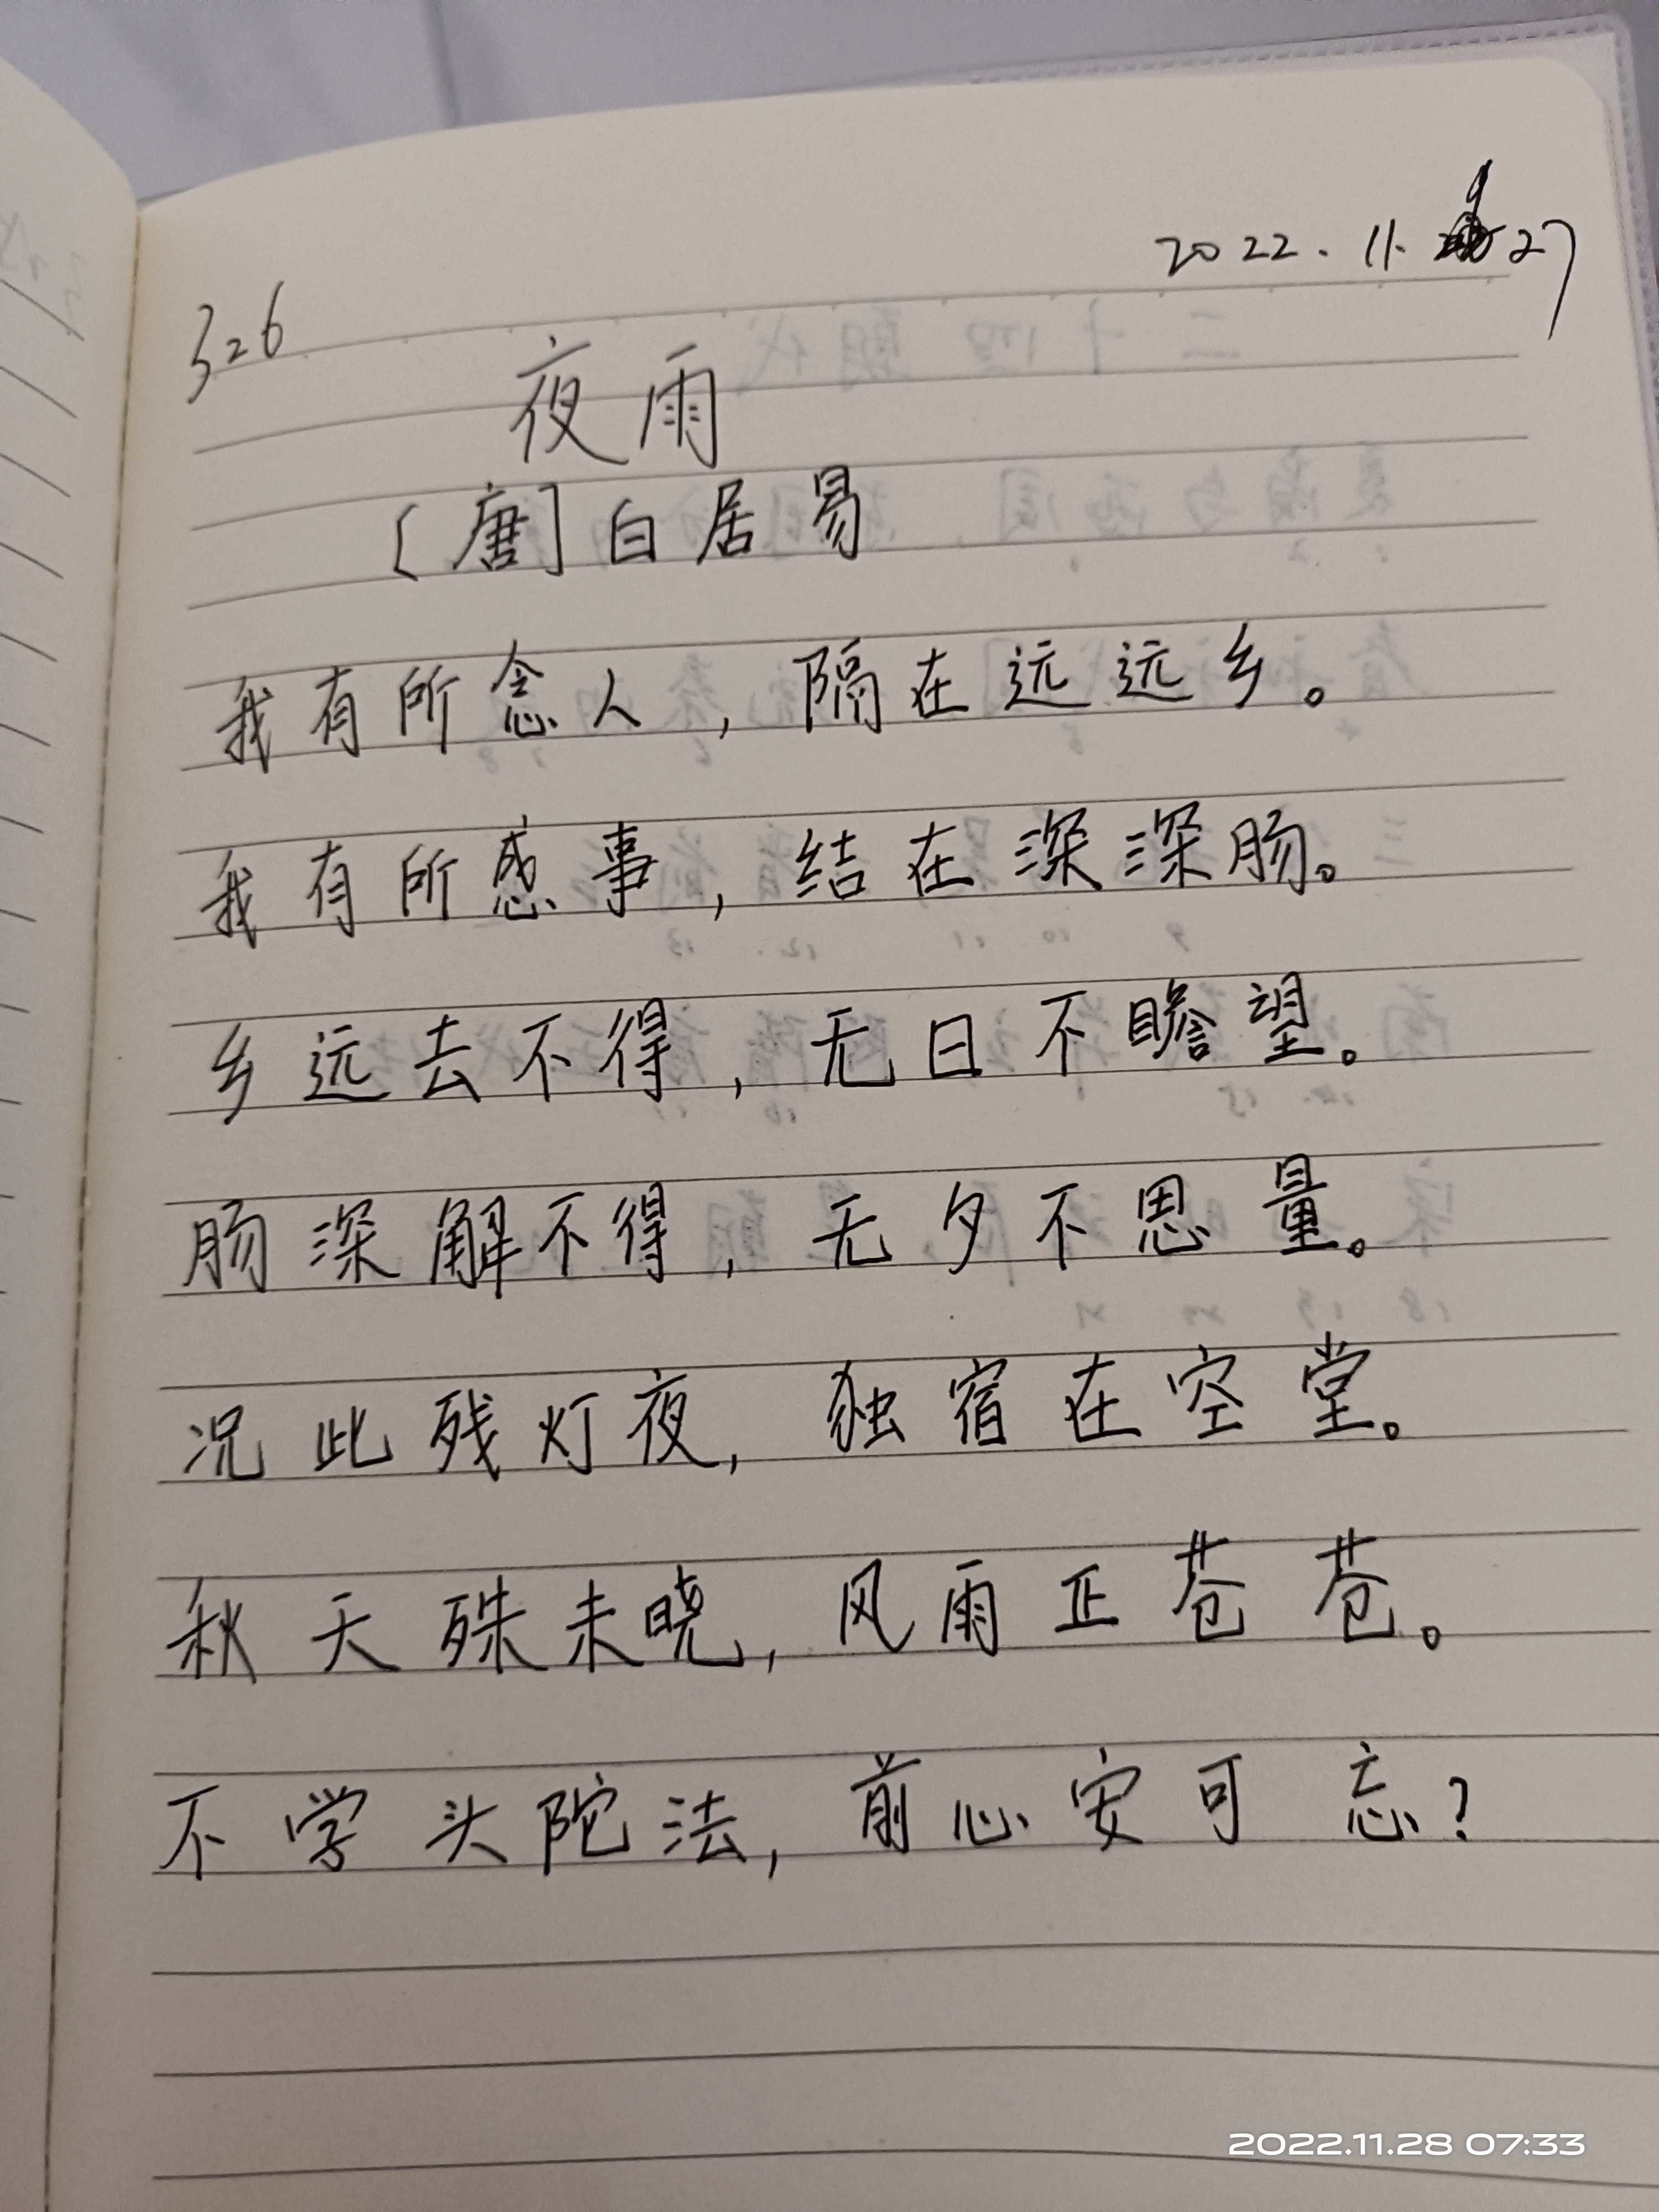 2022.11.27
326
夜雨
[唐]白居易
我有所念人,隔在远远乡。
我有所感事,结在深深肠。
乡远去不得,无日不瞻望。
肠深解不得,无夕不思量。
况此残灯夜,独宿在空堂。
秋天殊未晓,风雨正苍苍。
不学头陀法,前心安可忘?
2022.11.28 07:33